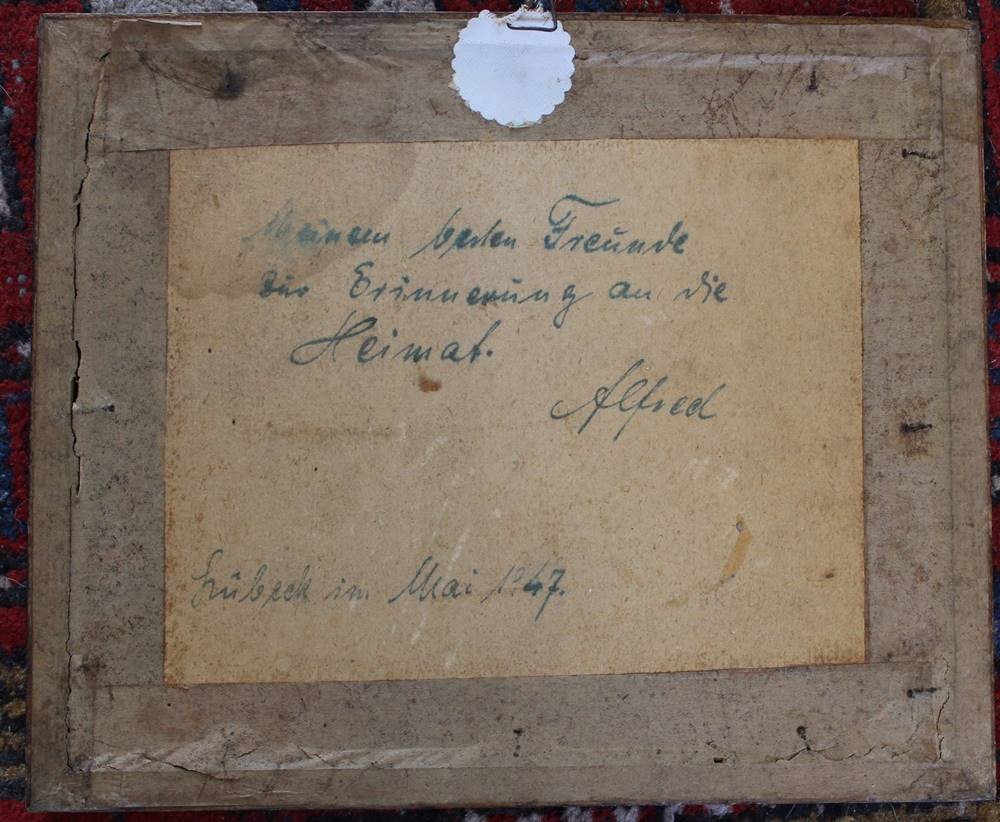 Meinem besten Freunde
zur Erinnerung an die
Heimat.
Alfred
Lübeck im Mai 1947.